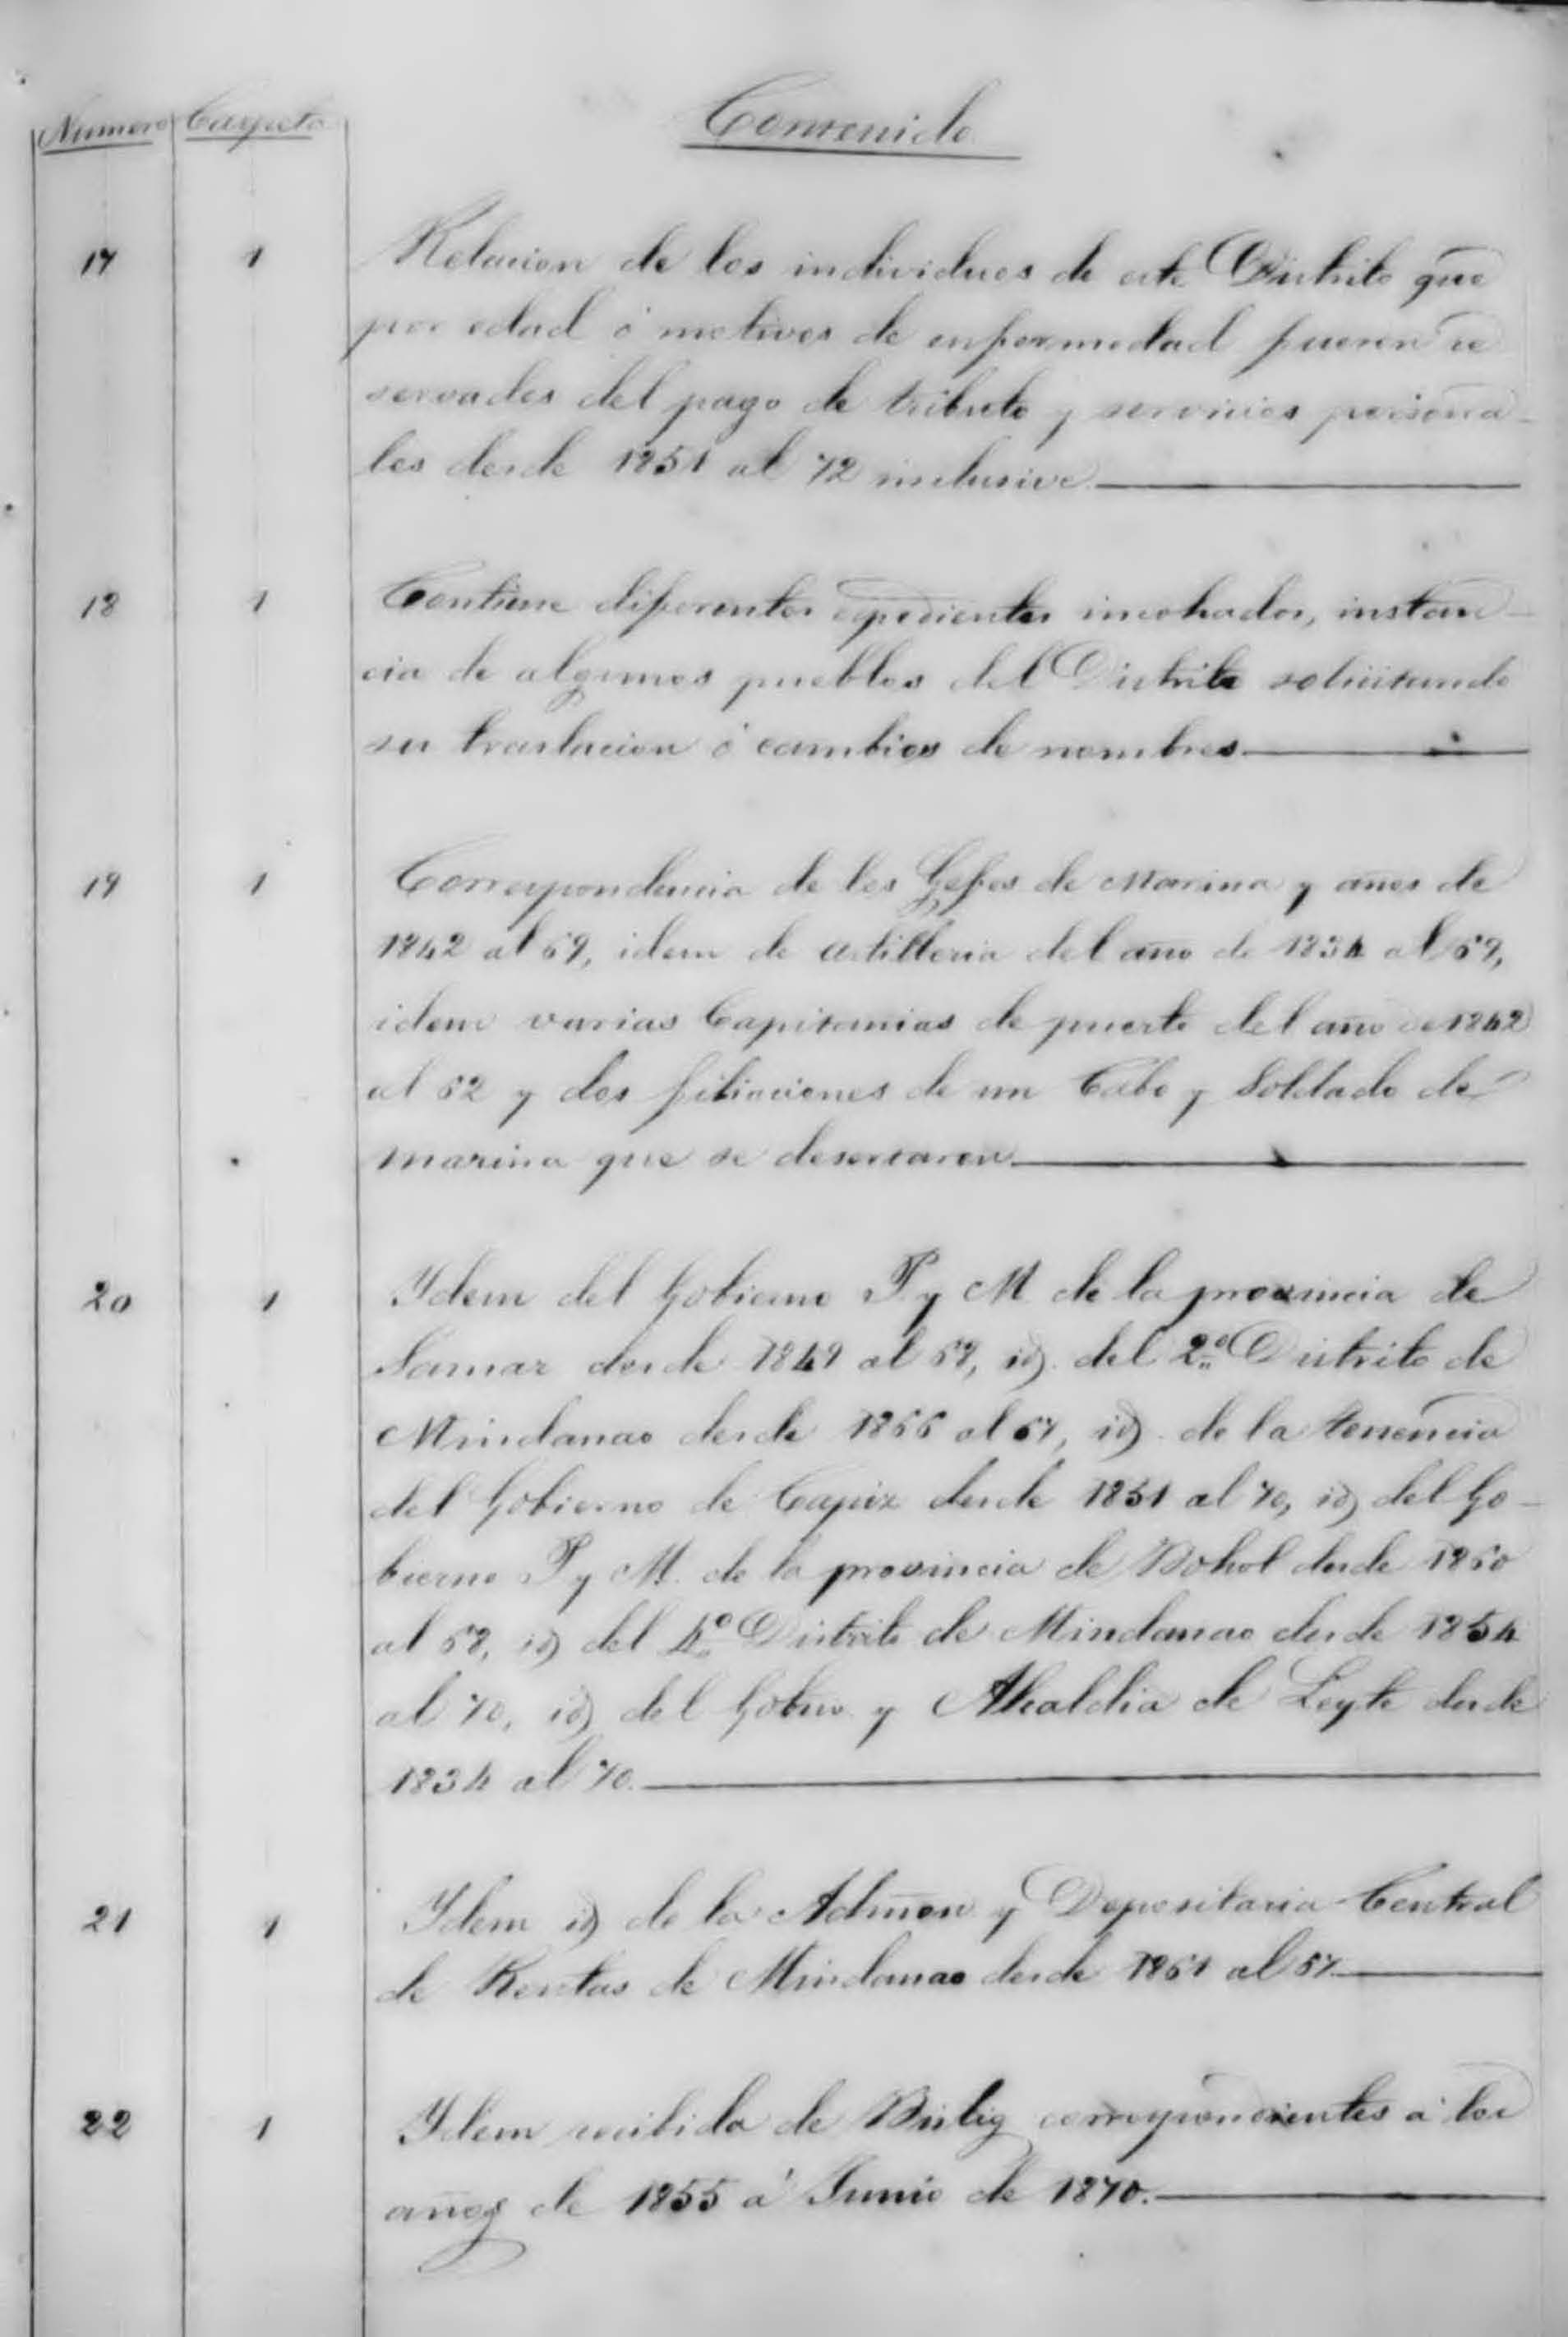 Numero Carpeta Contenido
17 1 Relacion de los individuos de este Distrito que
por edad ó motivos de enfermedad fueron re
servados del pago de tributo y servicios persona-
les desde 1851 al 72 inclusive.
18 1 Contiene diferentes espedientes incohados, instan-
cia de algunos pueblos del Distrito solicitando
su traslacion ó cambios de nombres.
19 1 Correspondencia de los Gefes de Marina y años de
1842 al 69, idem de artilleria del año de 1834 al 69,
idem varias Capitanias de puerto del año de 1842
al 62 y dos filiaciones de un Cabo y Soldado de
marina que se desertaron
20 1 Ydem del Gobierno P. y M. de la provincia de
Samar desde 1849 al 68, id. del 2º Distrito de
Mindanao desde 1866 al 67, id. de la tenencia
del Gobierno de Capiz desde 1851 al 70, id del Go-
bierno P y M. de la provincia de Bohol desde 1860
al 68, id del 4º Distrito de Mindanao desde 1854
al 70, id del Gobno y Alcaldia de Leyte desde
1834 al 70.
21 1 Ydem id de la Admon y Depositaria Central
de Rentas de Mindanao desde 1861 al 67
22 1 Ydem recibida de Bislig correspondientes á los
años de 1855 á Junio de 1870.